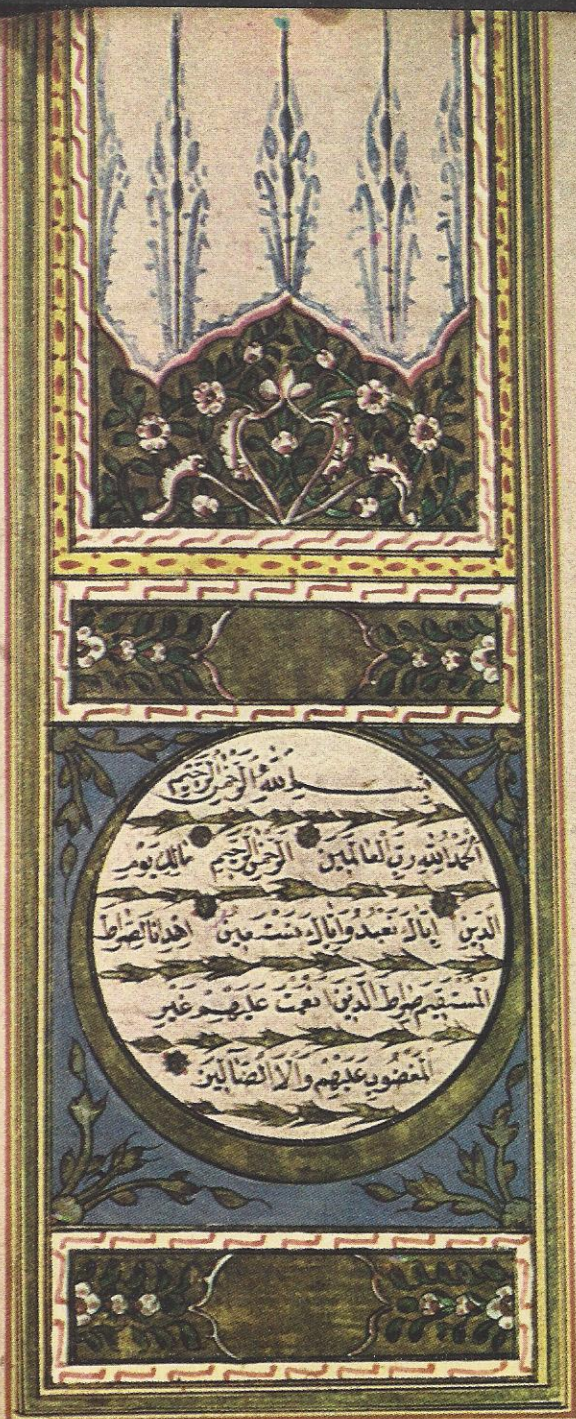 بِسْمِ اللهِ الرَّحْمٰنِ الرَّحِيْمِ
الْحَمْدُ لِلّٰهِ رَبِّ الْعَالَمِينَ الرَّحْمٰنِ الرَّحِيمِ مَالِكِ يَوْمِ
الدِّينِ اِيَّاكَ نَعْبُدُ وَاِيَّاكَ نَسْتَعِينُ اِهْدِنَا الصِّرَاطَ
الْمُسْتَقِيمَ صِرَاطَ الَّذِينَ اَنْعَمْتَ عَلَيْهِمْ غَيْرِ
الْمَغْضُوبِ عَلَيْهِمْ وَلَا الضَّالِّينَ